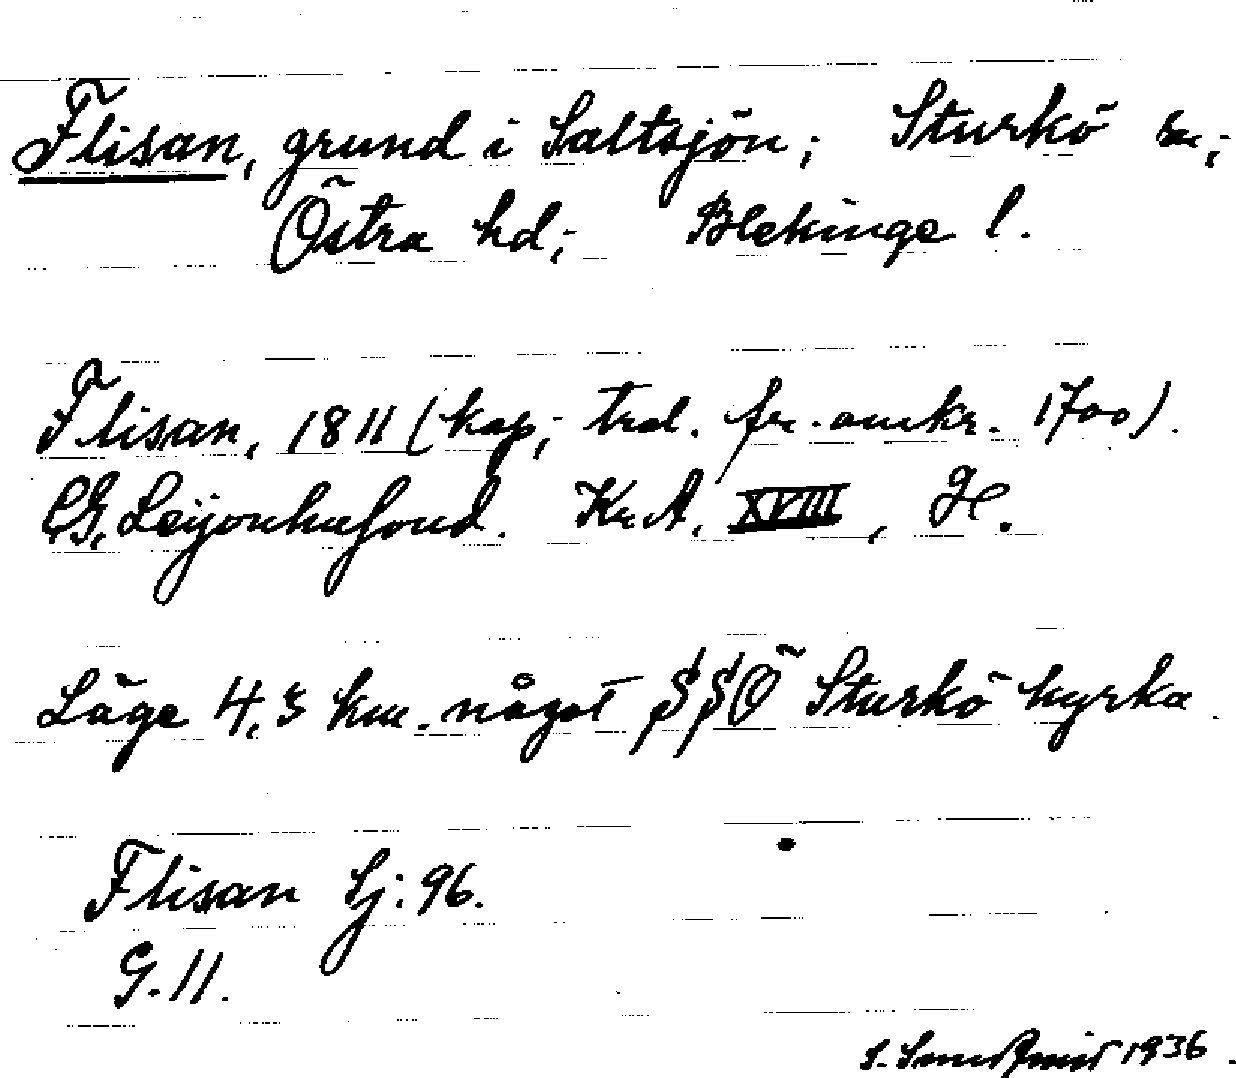 Flisan, grund i Saltsjön; Sturkö sn;
Östra hd; Blekinge l.
Flisan, 1811 (kop; trol. fr. omkr. 1700).
CG, Leijonhufvud. Kr. A. XVIII, H.
Läge 4,3 km. något SSÖ Sturkö kyrka.
Flisan Sj: 96.
G. 11.
S. 1936.